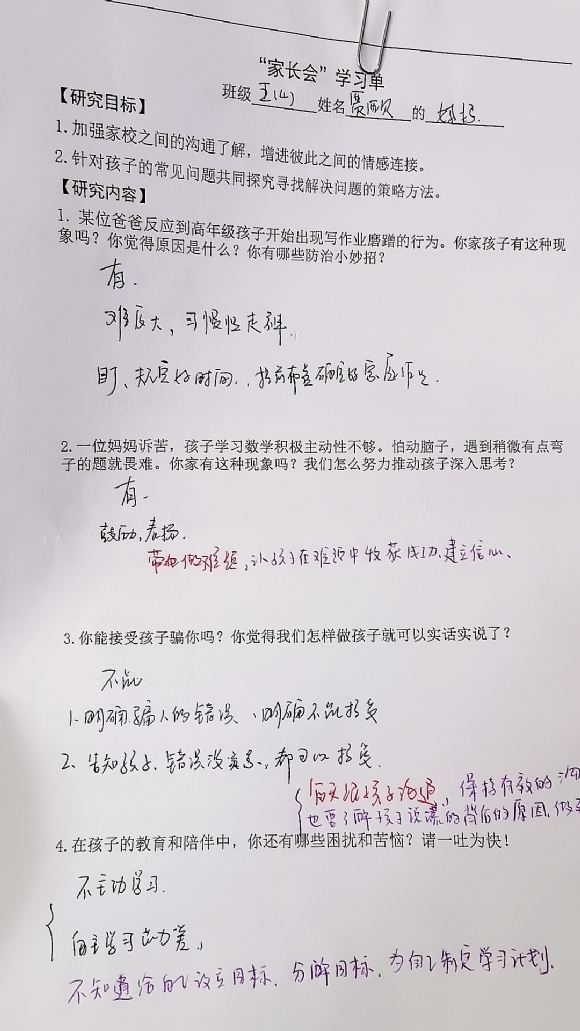 “家长会”学习单
班级 五(4) 姓名 的 妈妈.
【研究目标】
1.加强家校之间的沟通了解，增进彼此之间的情感连接。
2.针对孩子的常见问题共同探究寻找解决问题的策略方法。
【研究内容】
1. 某位爸爸反应到高年级孩子开始出现写作业磨蹭的行为。你家孩子有这种现
象吗？你觉得原因是什么？你有哪些防治小妙招？
有.
难度大、习惯
规定好时间.
2.一位妈妈诉苦，孩子学习数学积极主动性不够。怕动脑子，遇到稍微有点弯
子的题就畏难。你家有这种现象吗？我们怎么努力推动孩子深入思考？
有.
鼓励,表扬.
带他做难题,让孩子在难题中收获成功,建立信心、
3.你能接受孩子骗你吗？你觉得我们怎样做孩子就可以实话实说了？
不能
1.明确骗人的错误、明确不能接受
2、告知孩子、错误没关系,都可以接受.
每天跟孩子沟通, 保持有效的沟
也要了解孩子说谎的背后的原因,做
4.在孩子的教育和陪伴中，你还有哪些困扰和苦恼？请一吐为快！
不主动学习.
自主学习能力差,
不知道给自己设立目标、分解目标、为自己制定学习计划.